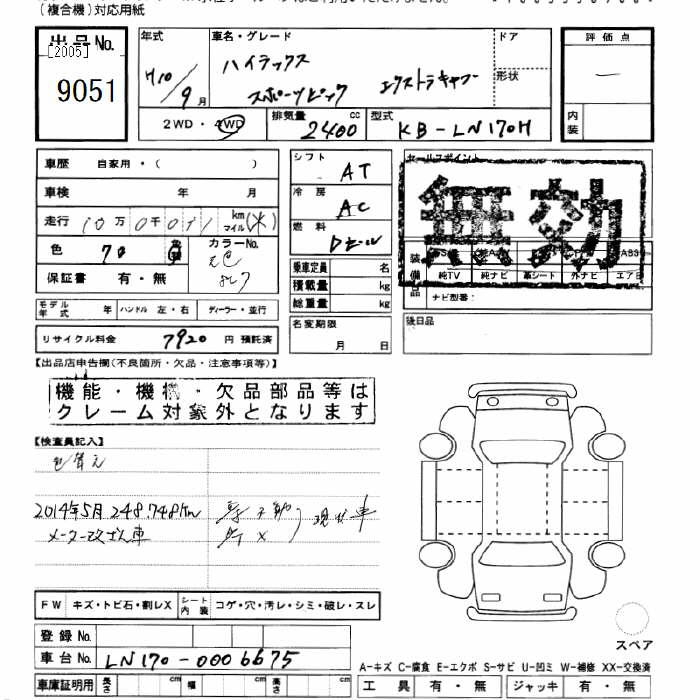 (複合機)対応用紙
出品No.
[2005]
9051
年式
H10/9月
車名・グレード
ハイラックス
スポーツピック エクストラキャブ
ドア
形状
評価点
内装
2WD・4WD
排気量 2400 cc
型式 KB-LN170H
車歴 自家用・( )
車検 年 月
走行 10万0千011 km マイル(*)
色 70
カラーNo.
保証書 有・無
モデル年式 ハンドル 左・右 ディーラー・並行
リサイクル料金 7920 円 預託済
シフト AT
冷房 AC
燃料
乗車定員 名
積載量 kg
総重量 kg
名変期限
月 日
セールスポイント
無効
装備品
純TV 純ナビ 革シート 外ナビ エアB
ナビ型番:
後日品
【出品店申告欄(不良箇所・欠品・注意事項等)】
機能・機構・欠品部品等は
クレーム対象外となります
【検査員記入】
色替え
2014年5月 248.748km
メーター改ざん車
現状車
FW キズ・トビ石・割レX シート内装 コゲ・穴・汚レ・シミ・破レ・スレ
登録No.
車台No. LN170-0006675
車庫証明用 長さ cm 幅 cm 高さ cm
スペア
A-キズ C-腐食 E-エクボ S-サビ U-凹ミ W-補修 XX-交換済
工具 有・無 ジャッキ 有・無